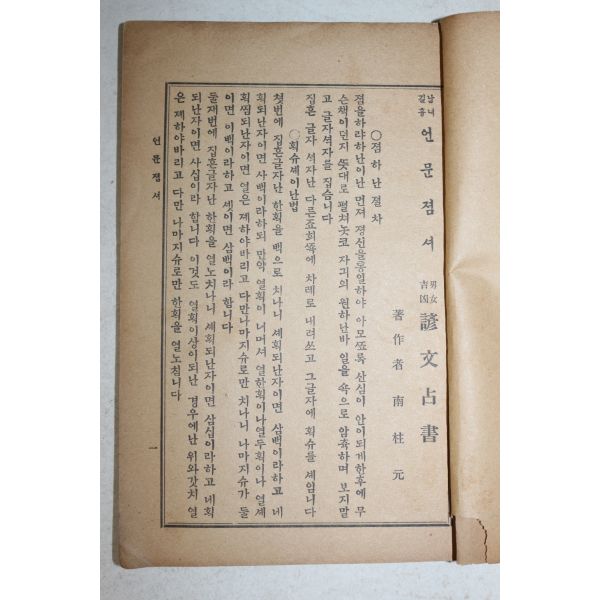 남녀
길흉
언문졈셔
男女
吉凶
諺文占書
著作者 南柱元
○졈하난졀차
졈을하랴하난이난 먼져 졍신을통일하야 아모쪼록 산심이 안이되게한후에 무
슨책이던지 뜻대로 펼쳐놋코 자긔의 원하난바 일을 속으로 암츅하며 보지말
고 글자셕자를 집습니다
집흔 글자 셕자난 다른죠희쪽에 차례로 내려쓰고 그글자에 획슈를 셰임니다
○획슈셰이난법
쳣번에 집흔글자난 한획을 백으로 치나니 셰획되난자이면 삼백이라하고 네
획되난자이면 사백이라하되 만약 열획이 너머셔 열한획이나열두획이나 열셰
획쯤되난자이면 열은 졔하야바리고 다만나마지슈로만 치나니 나마지슈가 둘
이면 이백이라하고 셋이면 삼백이라 합니다
둘재번에 집흔글자난 한획을 열노치나니 셰획되난자이면 삼십이라하고 네획
되난자이면 사십이라 합니다 이것도 열획이상이되난 경우에난 위와갓치 열
은 졔하야바리고 다만 나마지슈로만 한획을 열노침니다
언문졈셔
一